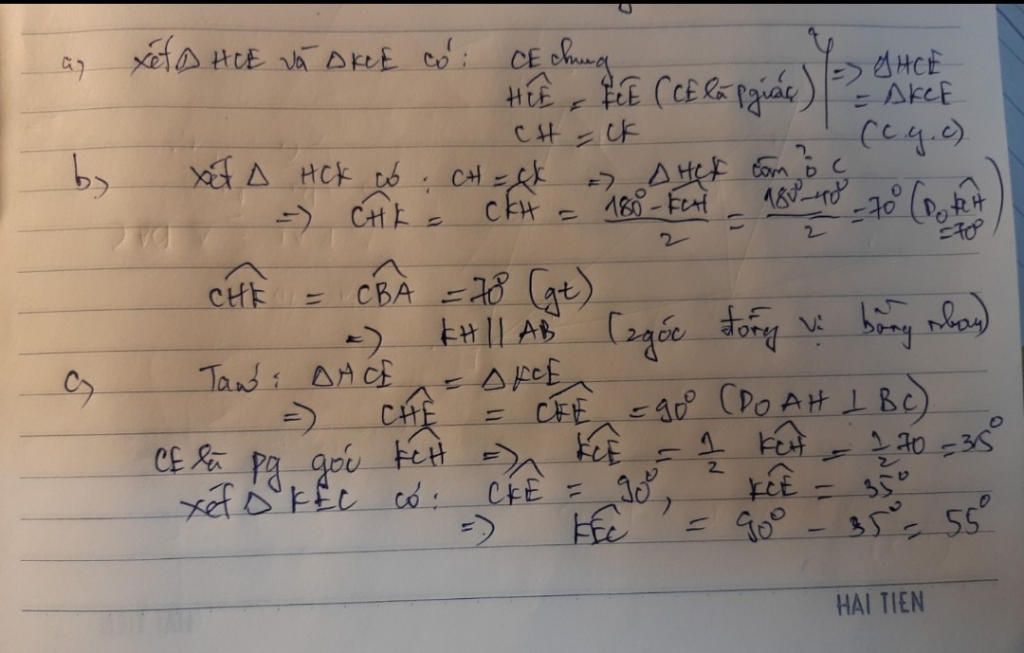 a, xét Δ HCE và ΔKCE có: CE chung } => ΔHCE
HCE = KCE (CE là pgiác) = ΔKCE
CH = CK (c.g.c)
b, xét Δ HCK có: CH = CK => Δ HCK cân ở C
=> CHK = CKH = 180° - KCH / 2 = 180° - 40° / 2 = 70° (Do KCH = 70°)
CHK = CBA = 70° (gt)
=> KH || AB (2 góc đồng vị bằng nhau)
c, Ta có: ΔHCE = ΔKCE
=> CHE = CKE = 90° (Do AH ⊥ BC)
CE là pg góc KCH => KCE = 1/2 KCH = 1/2 70 = 35°
xét Δ KEC có: CKE = 90°, KCE = 35°
=> KEC = 90° - 35° = 55°
HAI TIEN